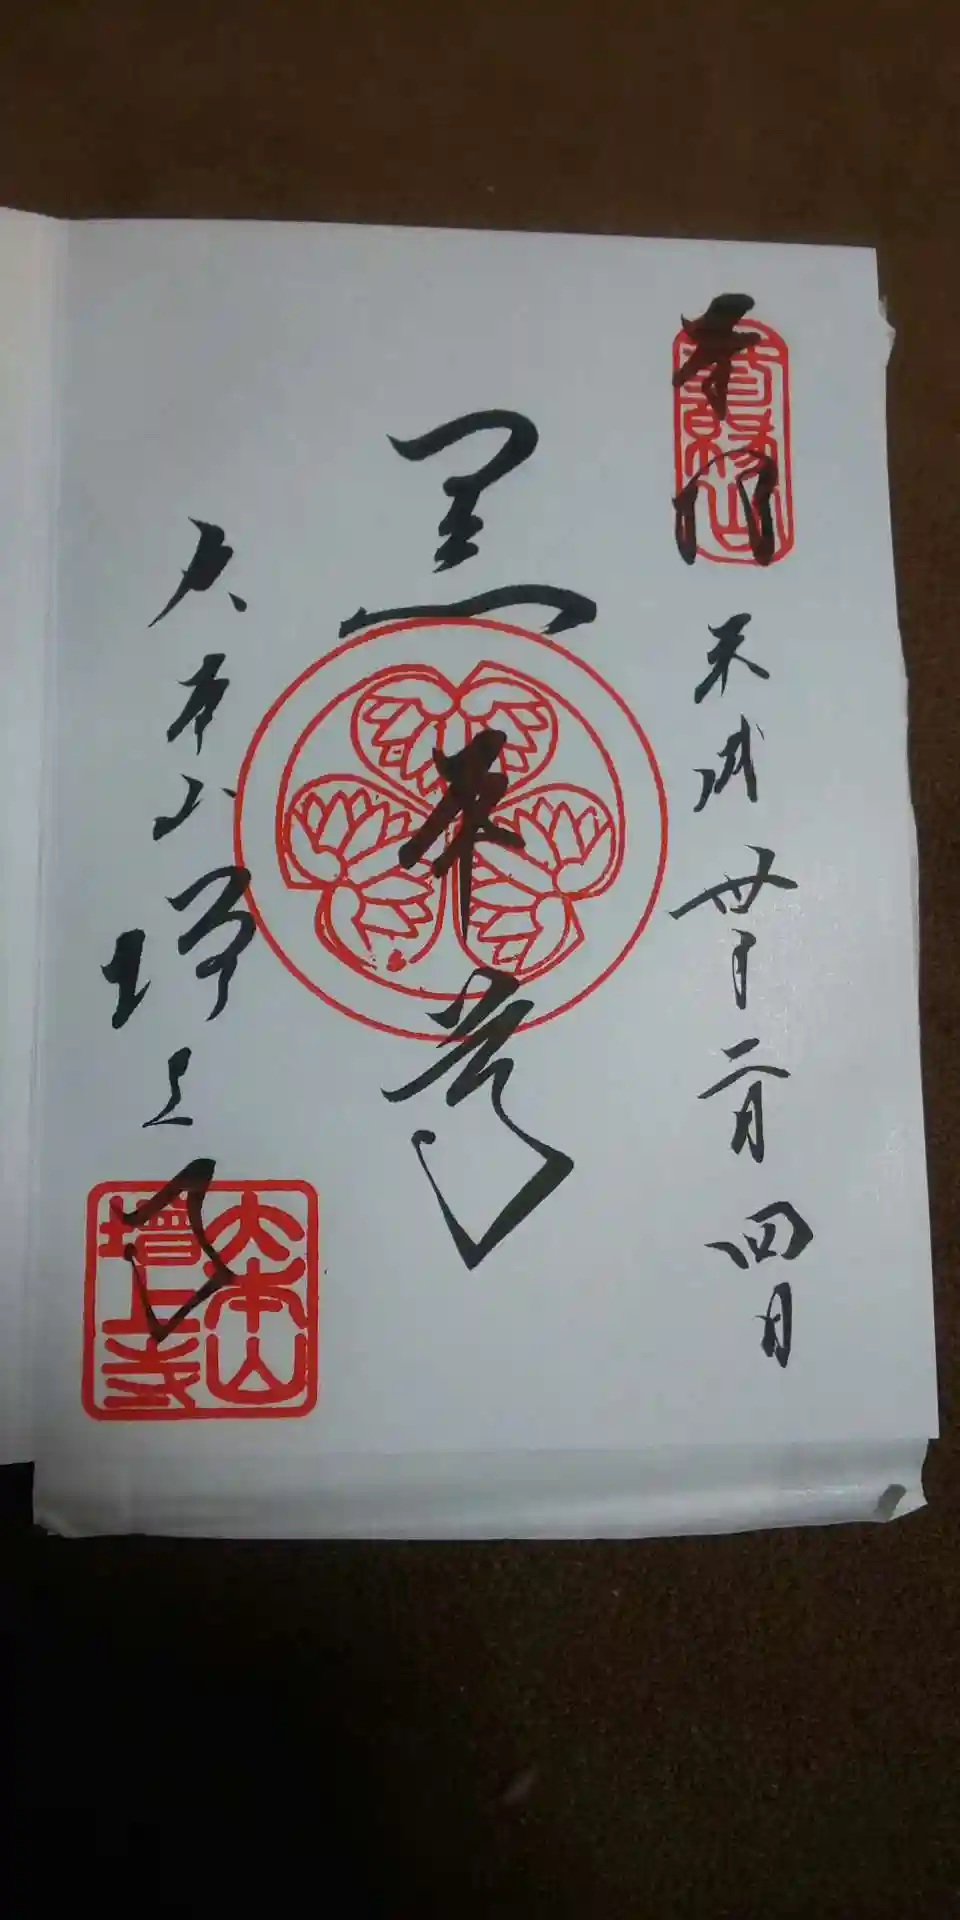 奉拝
平成卅年二月四日
黒本尊
大本山増上寺
三縁山
大本山
増上寺